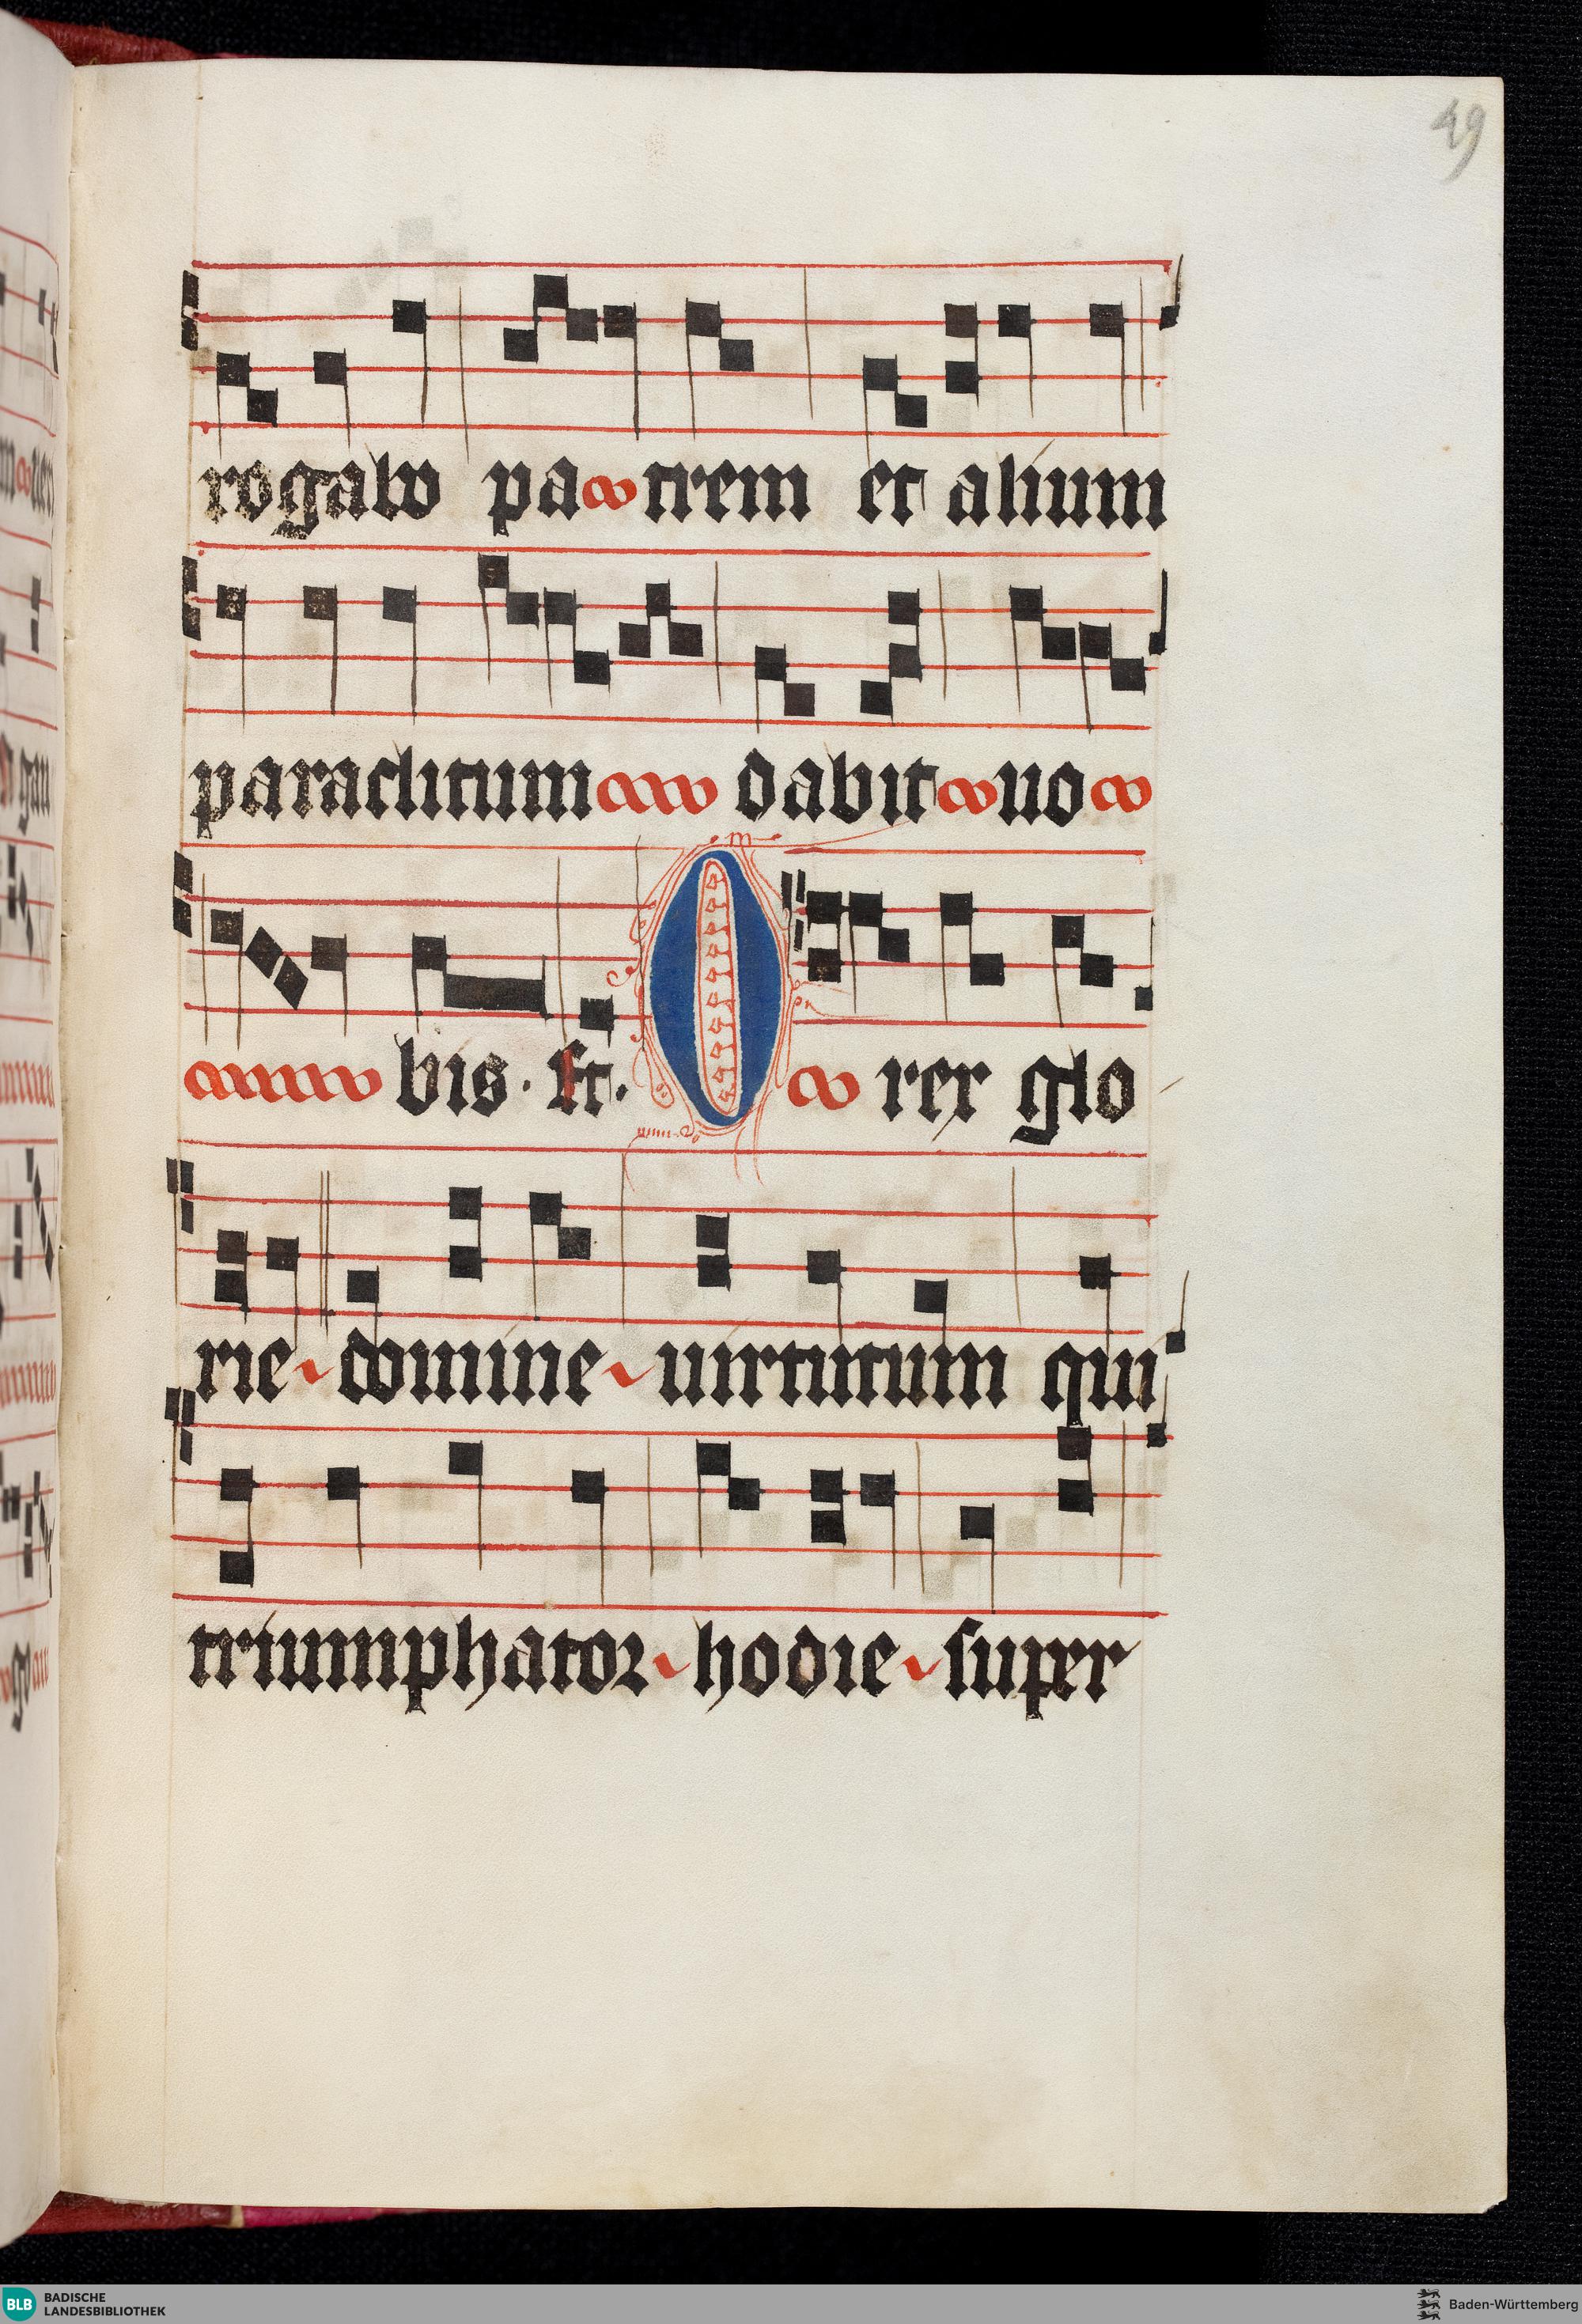 49
rogabo patrem et alium
paraclitum dabit uo
bis. O rex glo
rie domine uirtutum qui
triumphator hodie super
BLB BADISCHE
LANDESBIBLIOTHEK
Baden-Württemberg